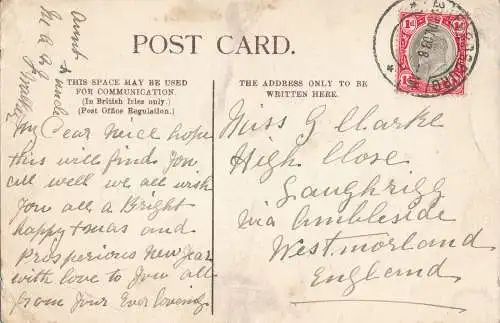 POST CARD.
THIS SPACE MAY BE USED
FOR COMMUNICATION.
(In British Isles only)
(Post Office Regulation.)
My Dear Neice hope
this will find you
all well we all wish
you all a Bright
happy Xmas and
Prosperious New Year
with love to you all
from your Ever loveing
Aunt & uncle
THE ADDRESS ONLY TO BE
WRITTEN HERE.
Miss G Clarke
High Close
Loughrigg
via Ambleside
Westmorland
England
1d 1d